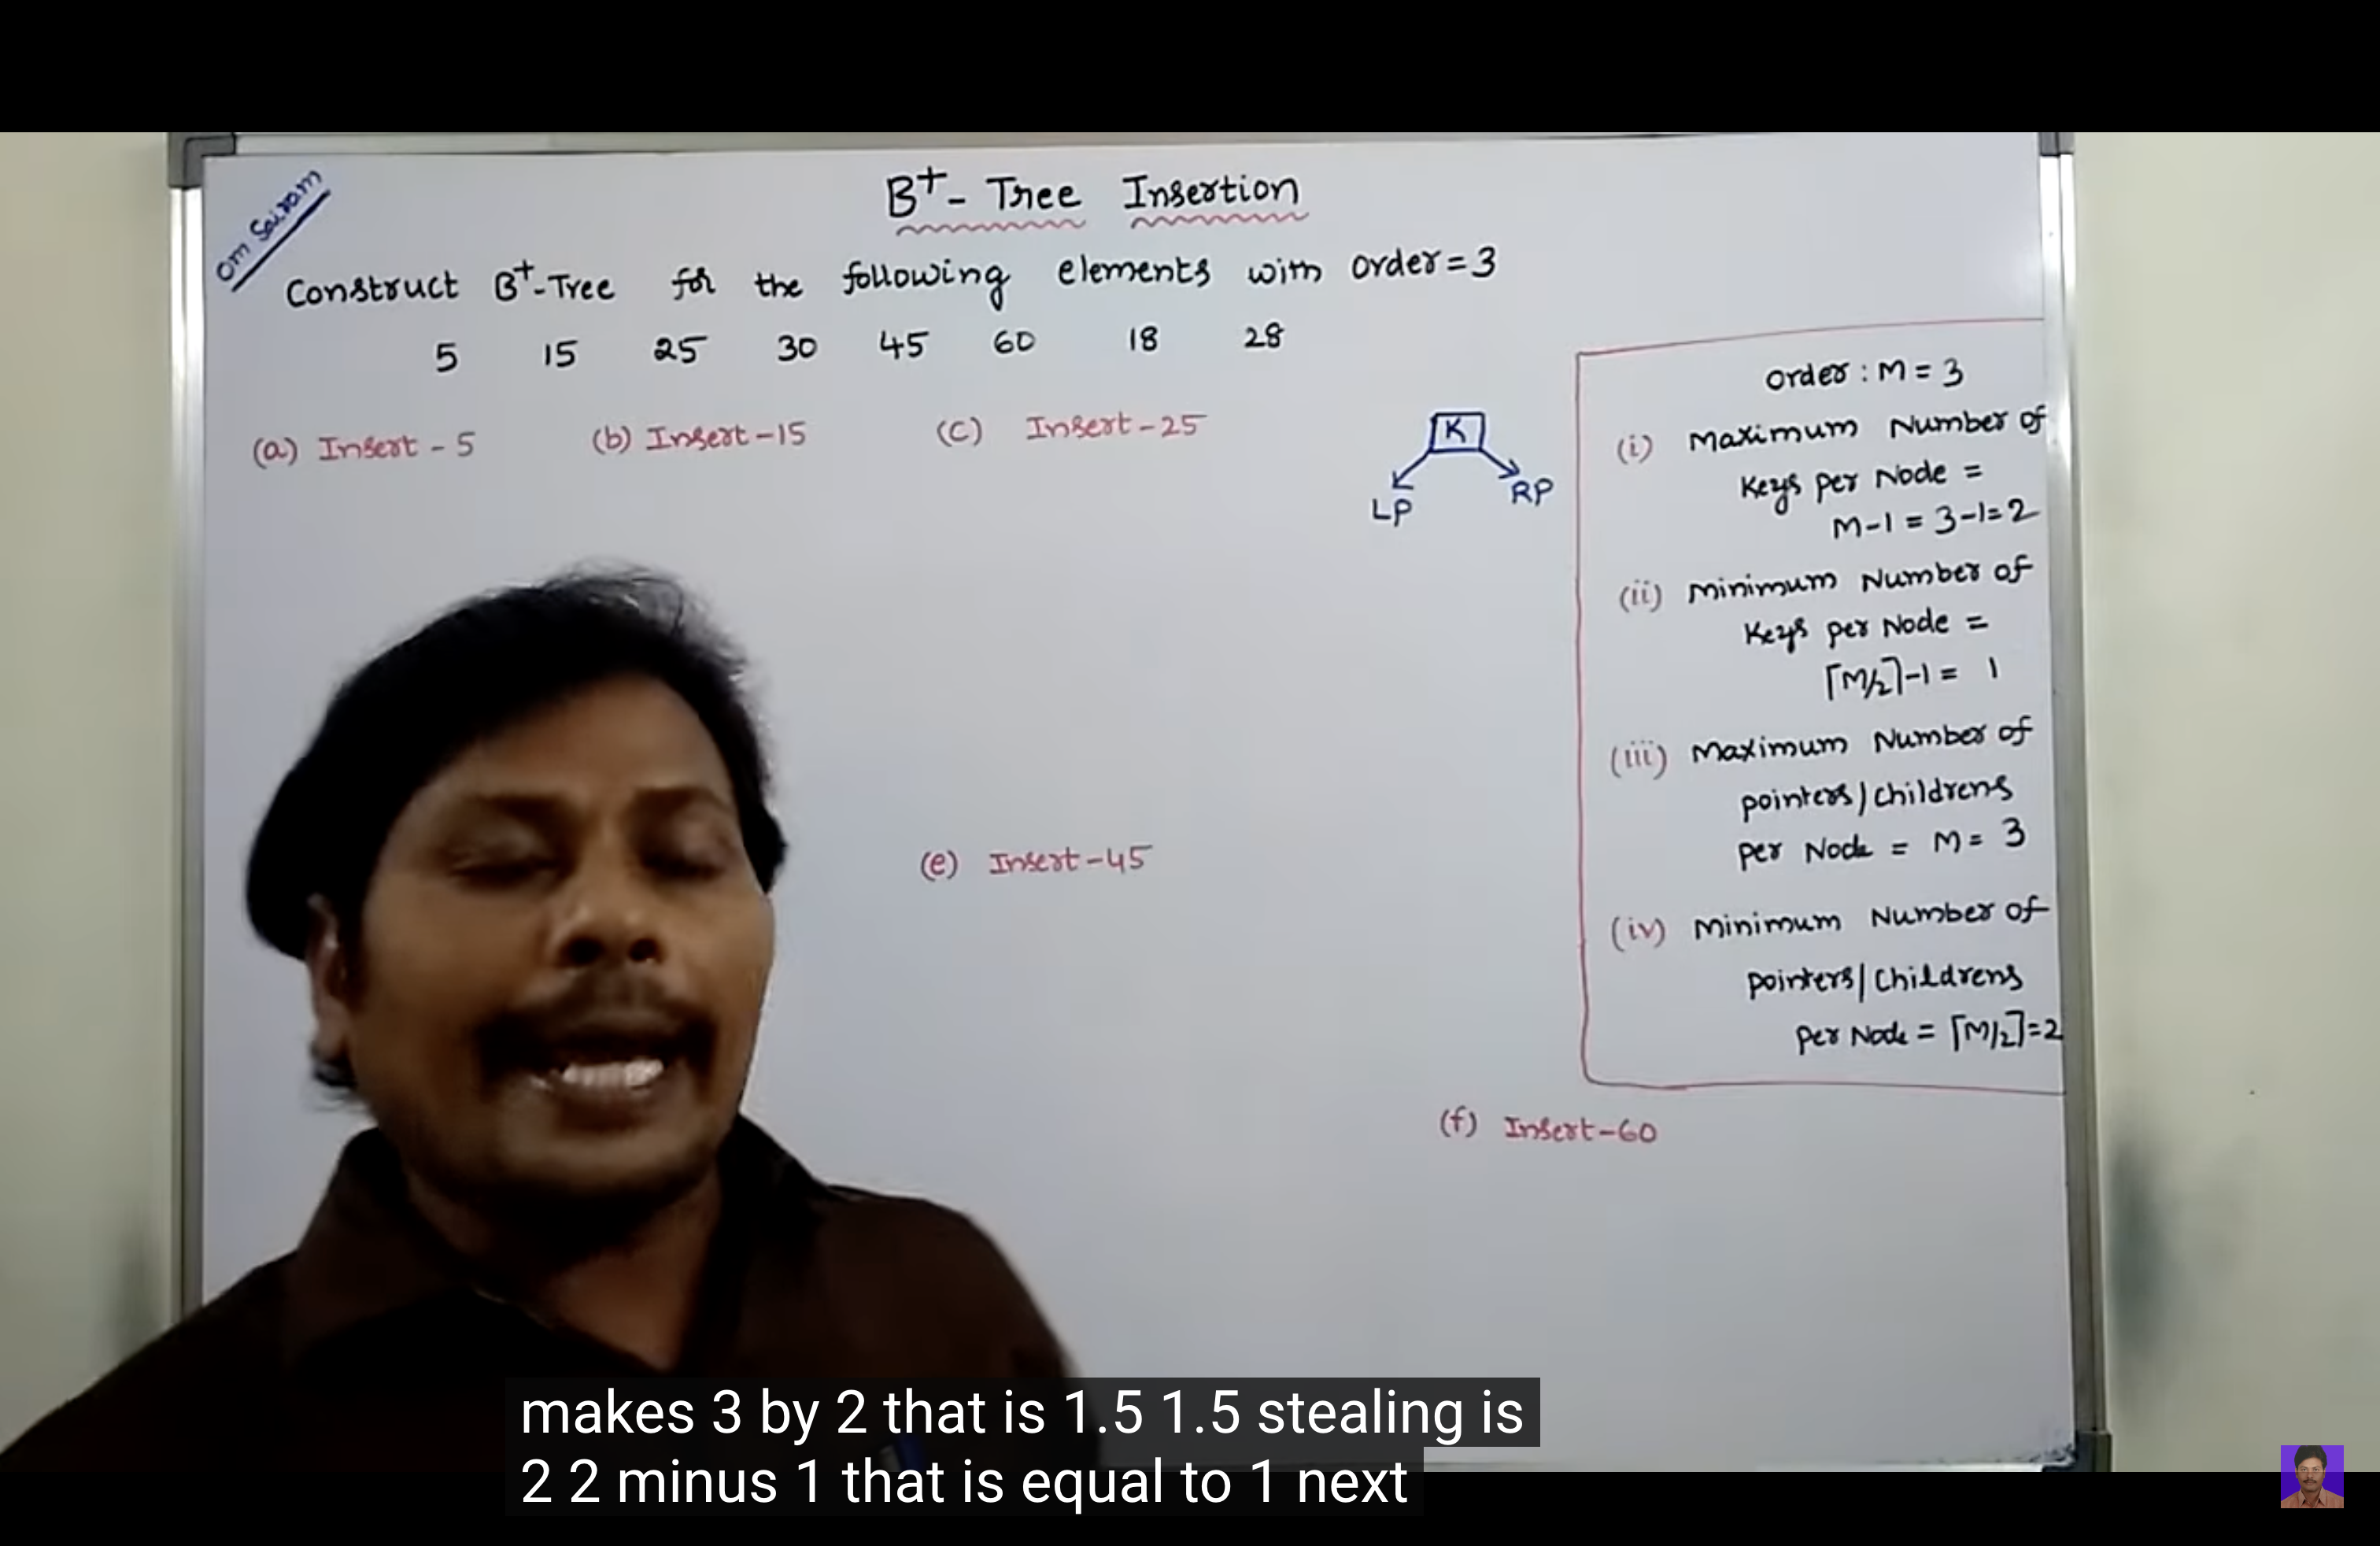 Om Sairam
B+- Tree Insertion
Construct B+-Tree for the following elements with order=3
5 15 25 30 45 60 18 28
(a) Insert - 5
(b) Insert-15
(c) Insert-25
K
LP
RP
(e) Insert-45
(f) Insert-60
Order : M = 3
(i) Maximum Number of
Keys per Node =
M-1 = 3-1=2
(ii) Minimum Number of
Keys per Node =
⌈M/2⌉-1 = 1
(iii) Maximum Number of
pointers/childrens
per Node = M = 3
(iv) Minimum Number of
pointers/childrens
per Node = ⌈M/2⌉=2
makes 3 by 2 that is 1.5 1.5 stealing is
2 2 minus 1 that is equal to 1 next